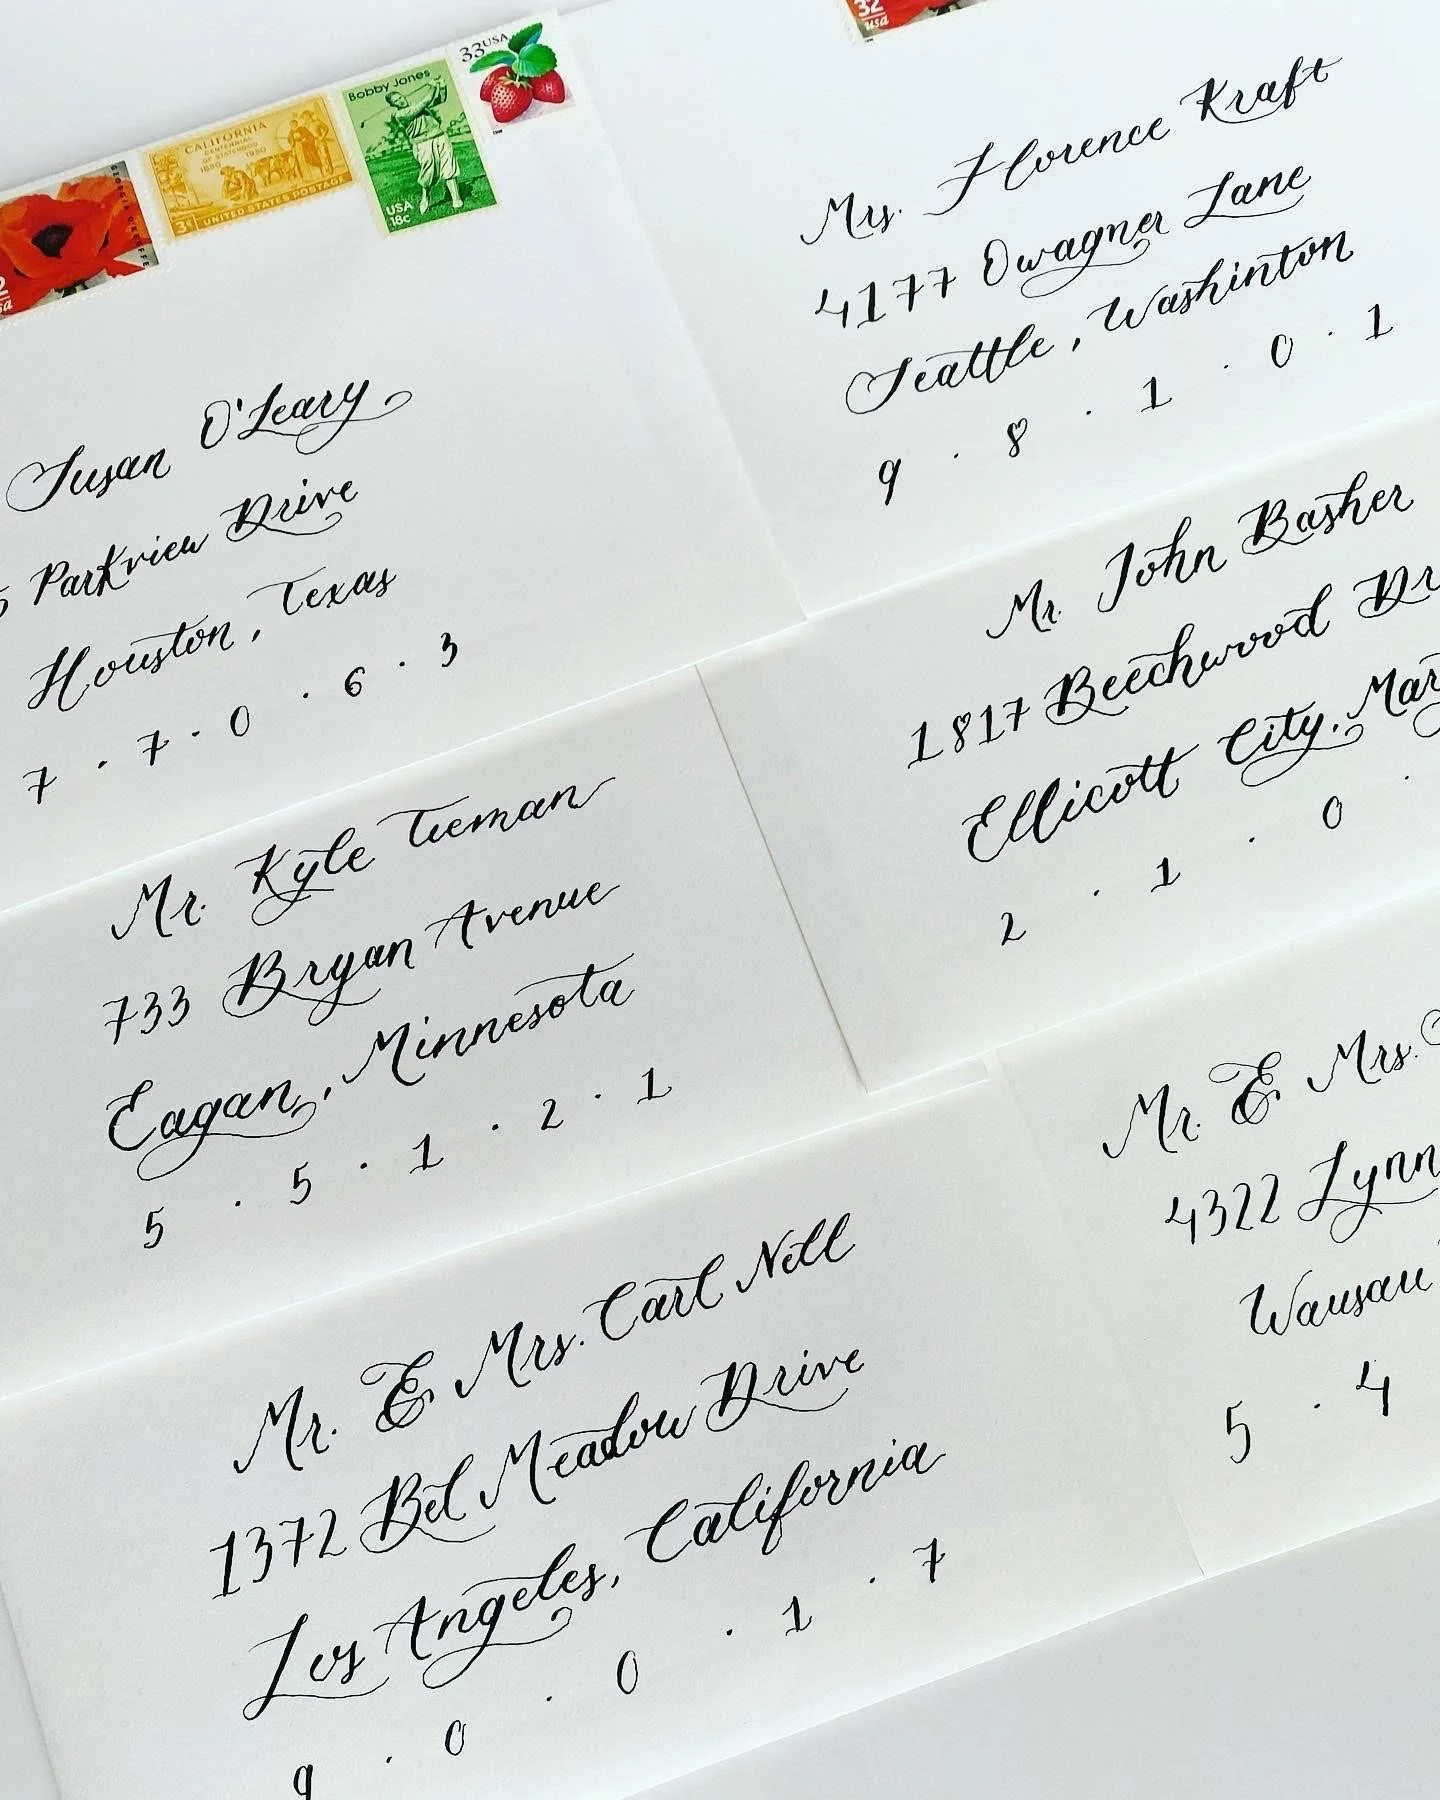 GEORGIA O'KEEFFE
CALIFORNIA
CENTENNIAL
OF STATEHOOD
1850 1950
3¢ UNITED STATES POSTAGE
Bobby Jones
USA
18c
33USA
Susan O'Leary
5 Parkview Drive
Houston, Texas
7 · 7 · 0 · 6 · 3
32
usa
Mrs. Florence Kraft
4177 Owagner Lane
Seattle, Washinton
9 · 8 · 1 · 0 · 1
Mr. John Basher
1817 Beechwood Dr
Ellicott City, Mar
2 · 1 · 0 ·
Mr. Kyle Tieman
733 Bryan Avenue
Eagan, Minnesota
5 · 5 · 1 · 2 · 1
Mr. & Mrs.
4322 Lynn
Wausau
5 · 4
Mr. & Mrs. Carl Nell
1372 Bel Meadow Drive
Los Angeles, California
9 · 0 · 0 · 1 · 7